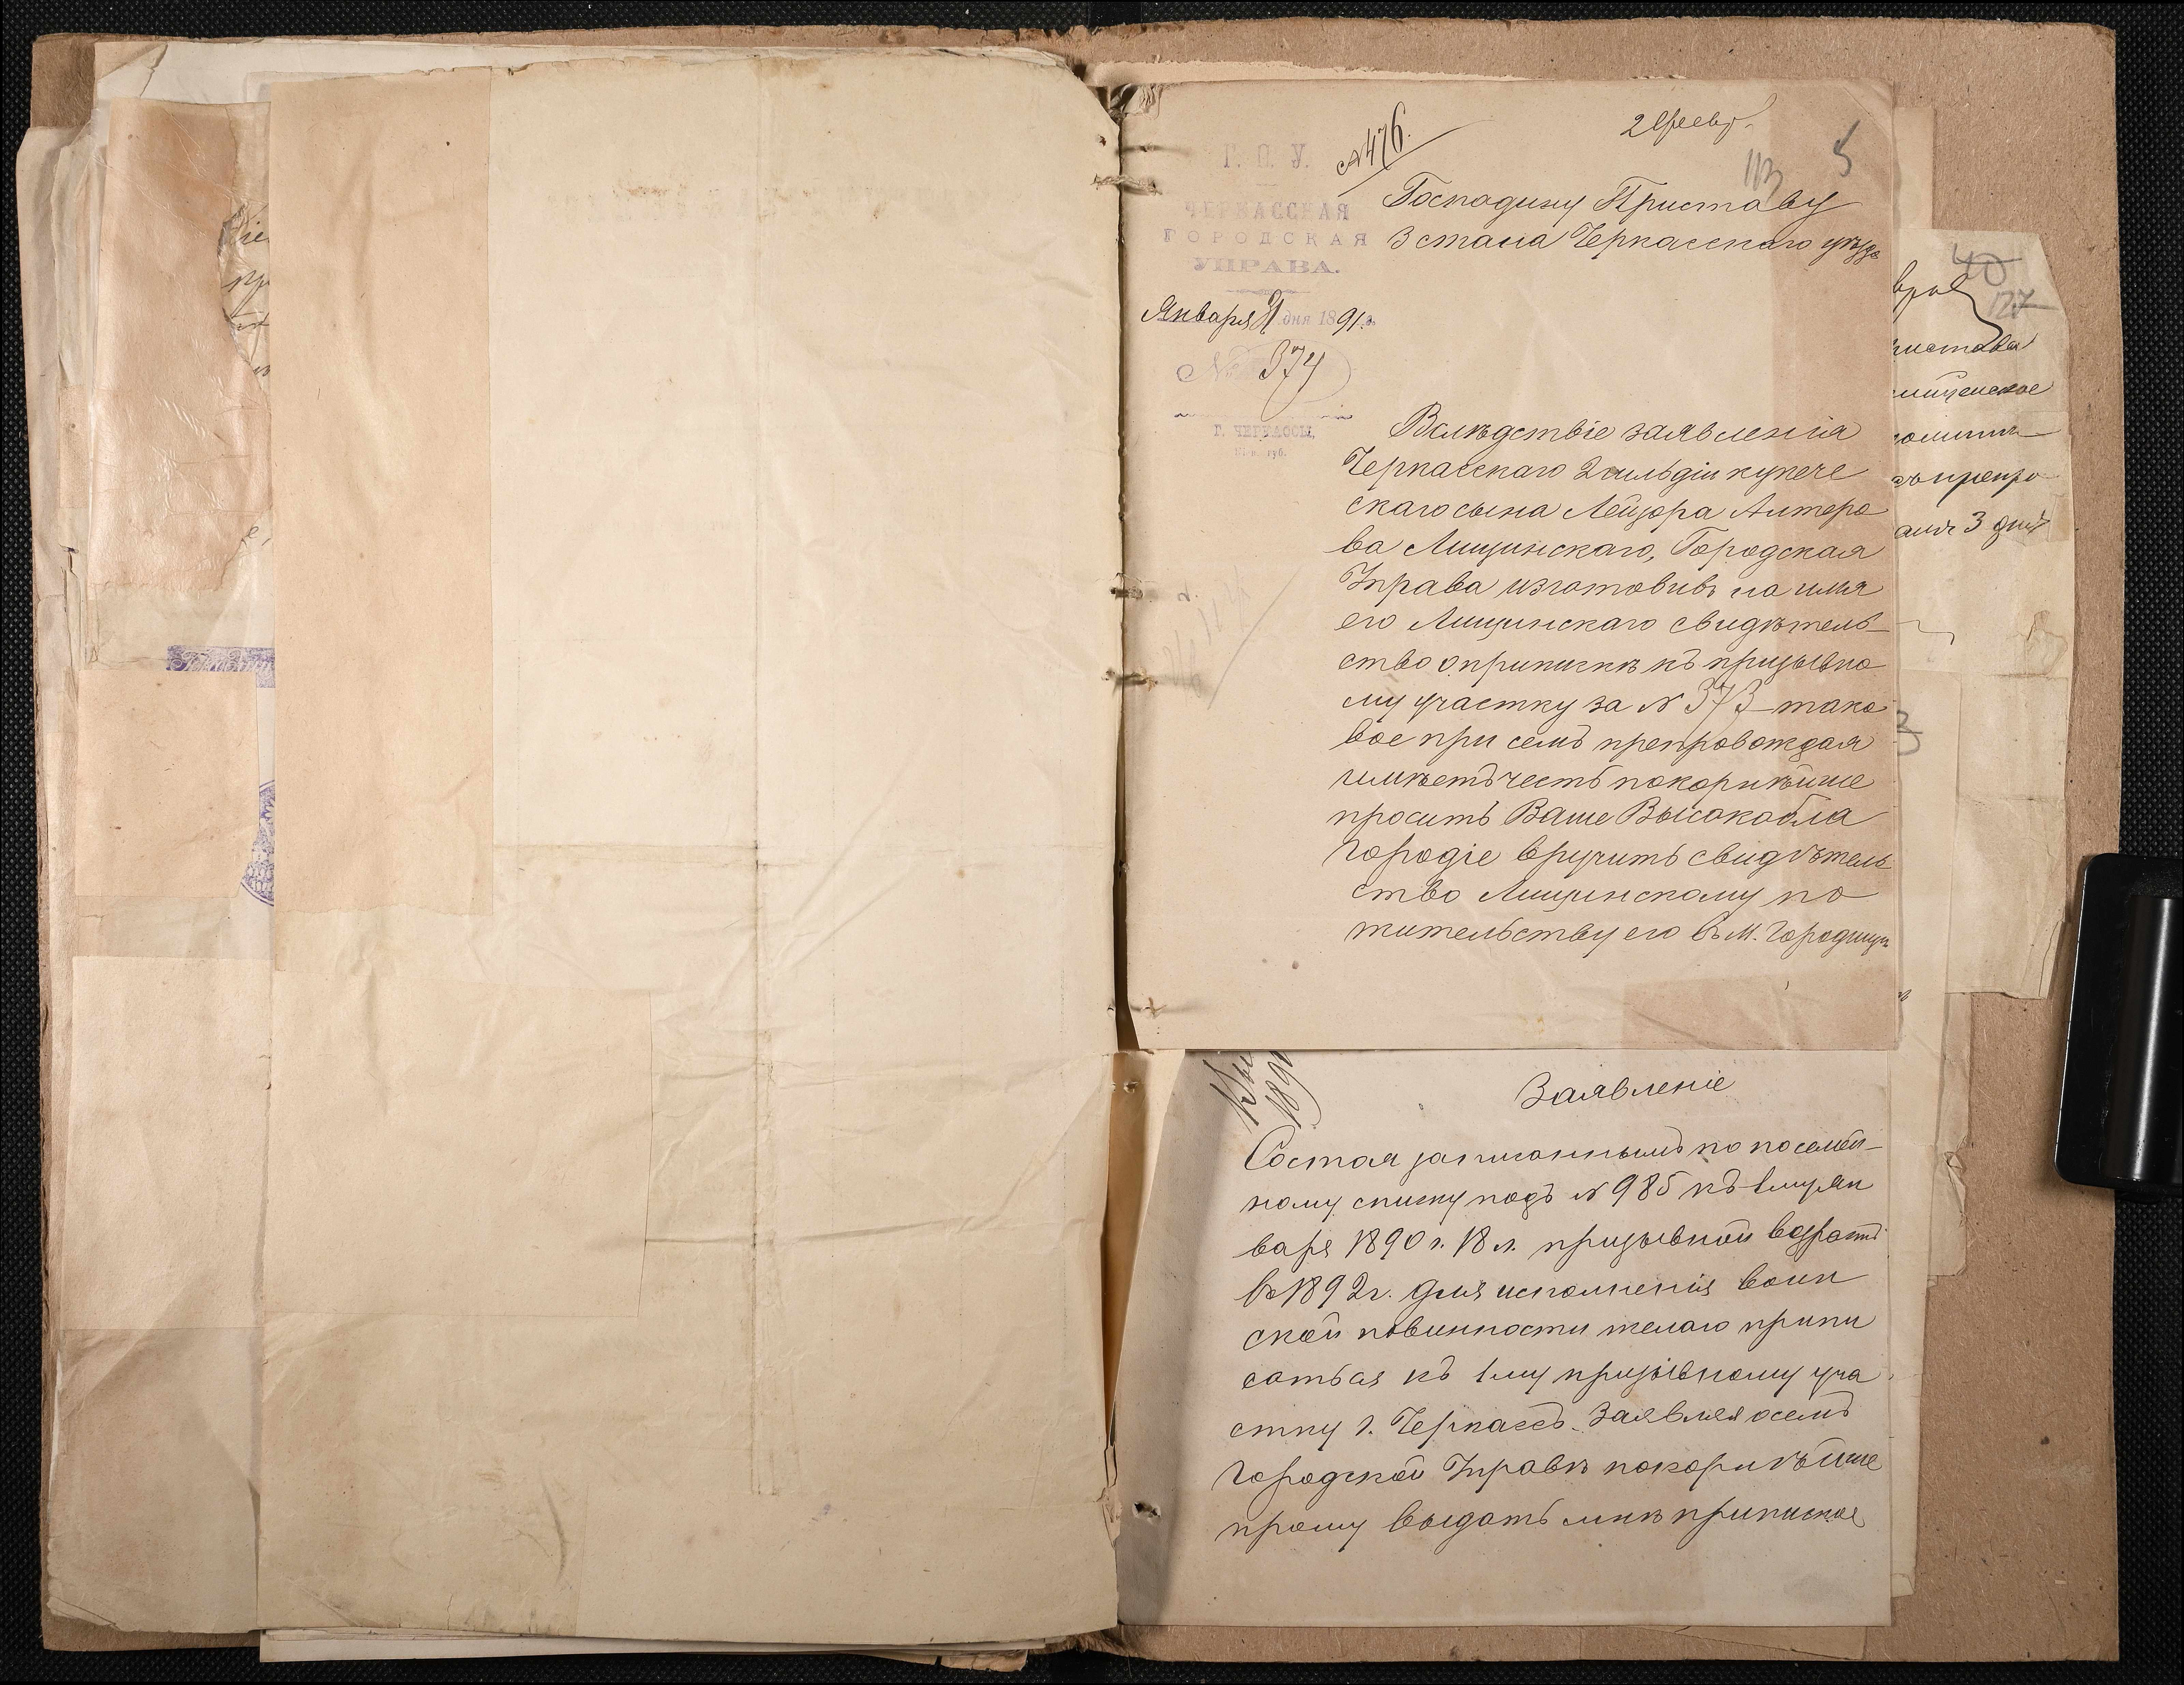 № 476.
2 Февр.
113
5
Г. О. У.
ЧЕРКАССКАЯ
ГОРОДСКАЯ
УПРАВА.
Января дня 1891 г.
№ 374
Г. ЧЕРКАССЫ,
губ.
Госпадину Приставу
3 стана Черкасскаго уѣзда
Вслѣдствіе заявленія
Черкасскаго 2 гильдіи купече
скаго сына Лейзора Антеро
ва Лищинскаго, Городская
Управа изготовивъ на имя
его Лищинскаго свидѣтель
ство о припискѣ къ призывно
му участку за № 373 тако
вое при семъ препровождая
имѣетъ честь покорнѣйше
просить Ваше Высокобла
городіе вручить свидѣтель
ство Лищинскому по
жительству его въ м. Городищѣ
Заявленіе
Состоя записаннымъ по посемей-
ному списку подъ № 985 къ 1му ян
варя 1890 г. 18 л. призывной возрастъ
въ 1892 г. для исполненія воин
ской повинности желаю припи
саться къ 1му призывному уча
стку г. Черкассъ. Заявляя о семъ
Городской Управѣ покорнѣйше
прошу выдать мнѣ приписное
40
127
3 дня